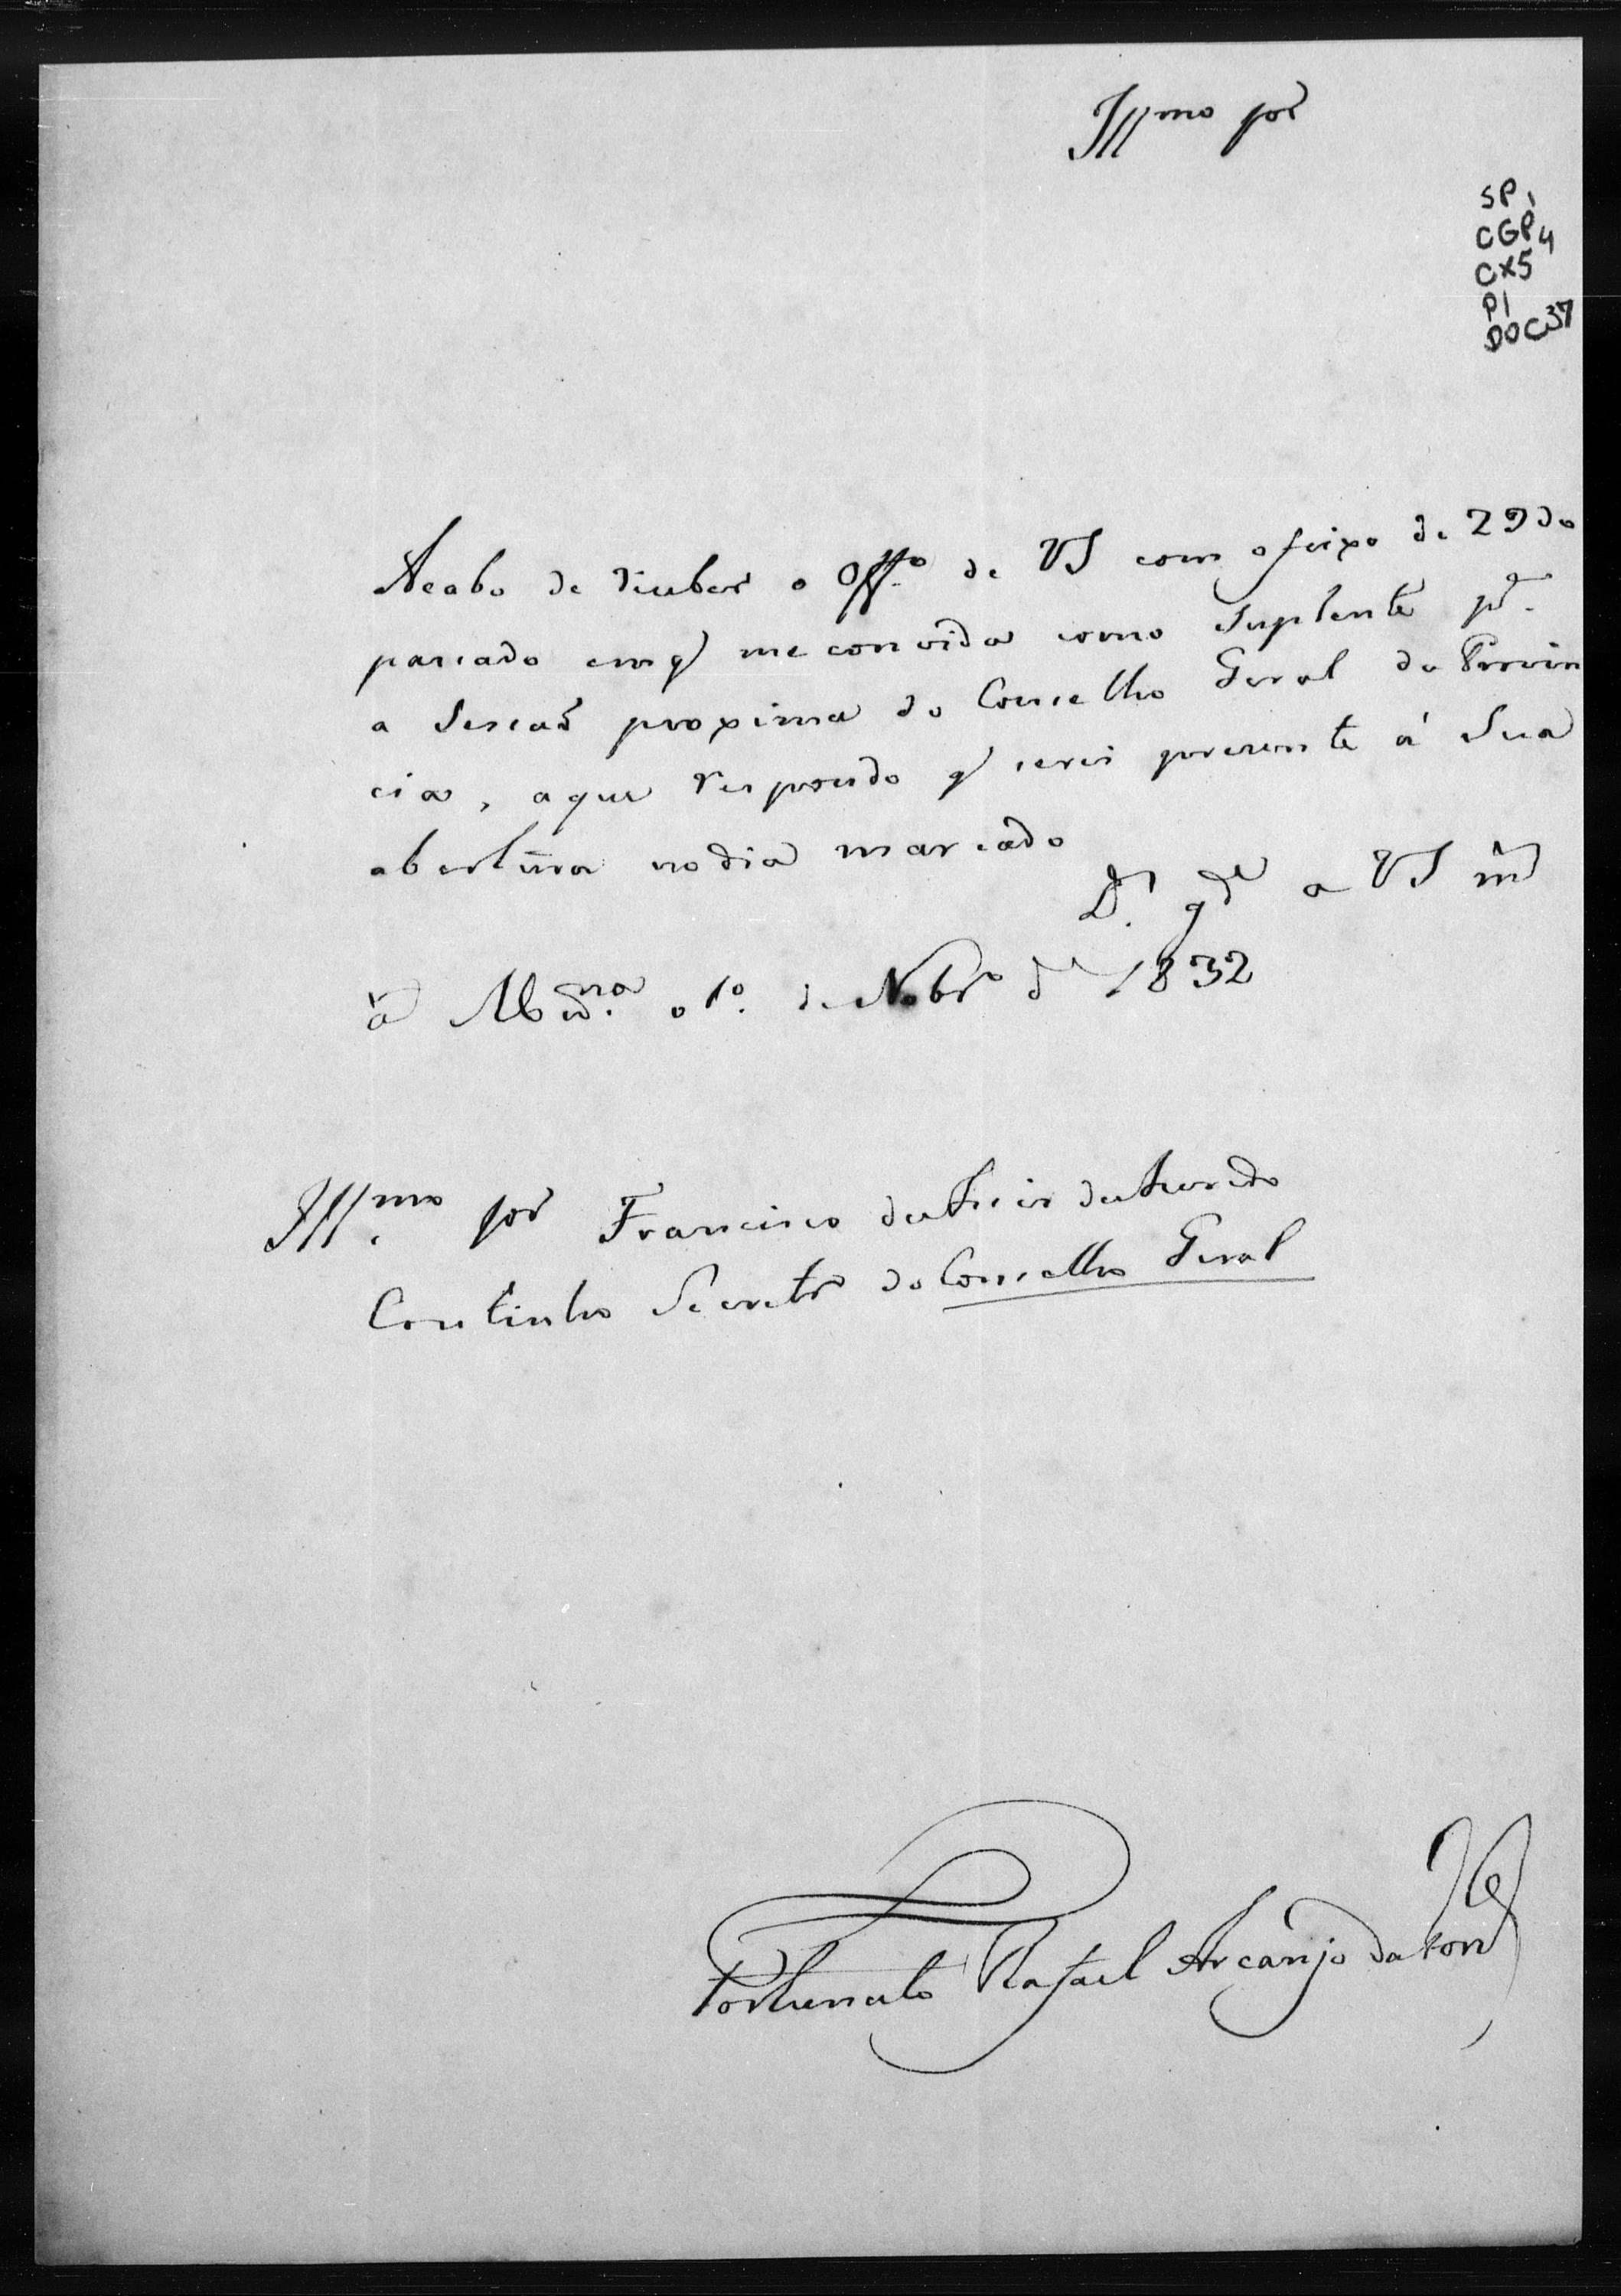 Illmo Sor
SP1
CGP4
CX5
P1
DOC37
Acabo de receber o Offo de VS com o feixo de 29 do
pasado em q me convida como Suplente pa
a Sescaõ proxima do Concelho Geral da Provin
cia, a que respondo q serei prezente á Sua
abertura no dia marcado
Ds gde a VS
1o de Nobro de 1832
Illmo Sor Francisco de
Coutinho Secretro do Concelho Geral
Fortunato Rafael Arcanjo da Fonca